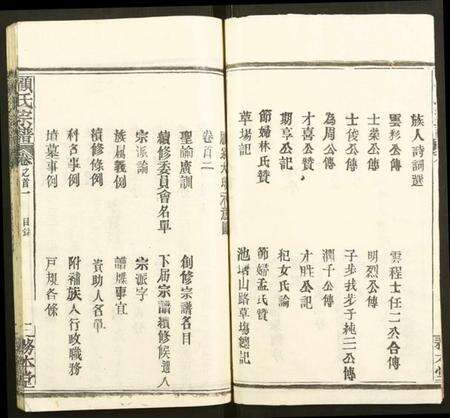 族人詩詞選
雲衫公傳 雲程士任二公合傳
士棠公傳 明烈公傳
士俊公傳 子恭我茅子純二公傳
為周公傳 潤千公傳
才喜公贊 才旺公記
期享公記 祀女氏論
節婦林氏贊 節婦孟氏贊
草場記 池塘山路草場總記
卷首二
聖諭廣訓 創修宗譜名目
續修委員會名單 下屆宗譜續修候選人
宗派論 宗派字
族屬義例 譜牒事宜
續修條例 資助人名單
科名事例 附補族人行政職務
墳墓事例 戶規各條
顧氏宗譜 卷之首一 目錄 二 務本堂